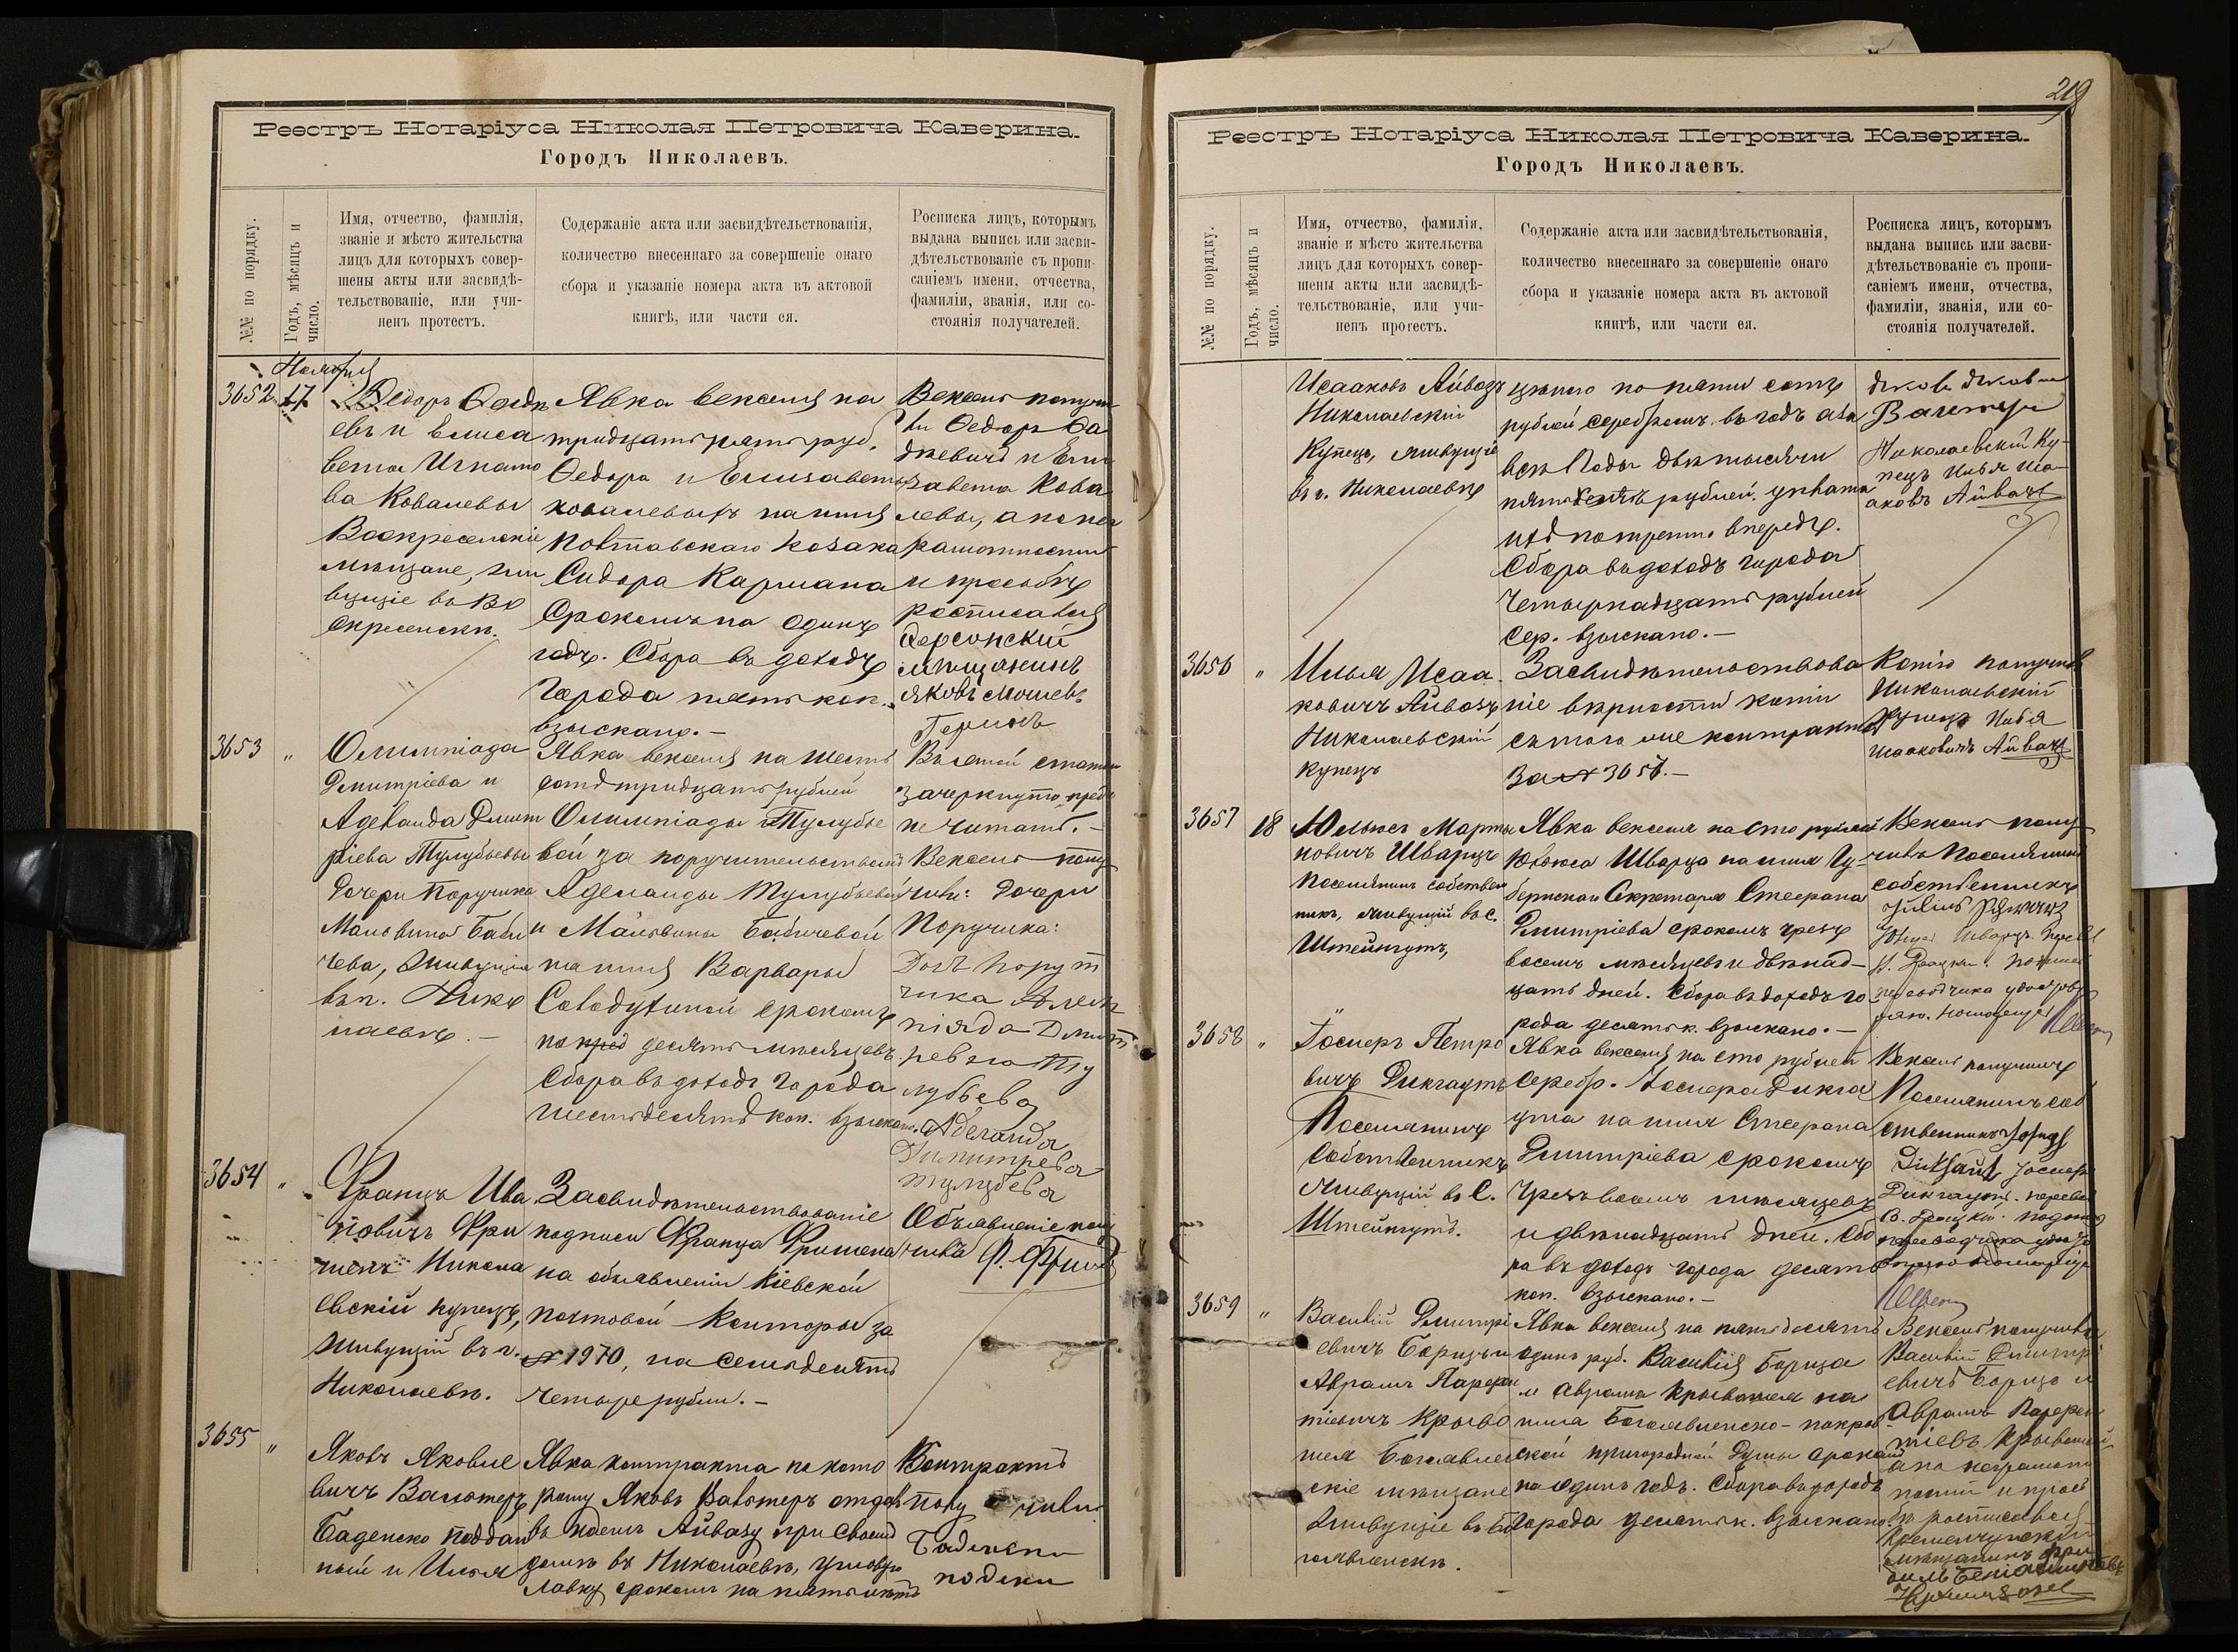 Реестръ Нотаріуса Николая Петровича Каверина.
Городъ Николаевъ.
№№ по порядку.
Годъ, мѣсяцъ и
число.
Имя, отчество, фамилія,
званіе и мѣсто жительства
лицъ для которыхъ совер-
шены акты или засвидѣ-
тельствованіе, или учи-
ненъ протестъ.
Содержаніе акта или засвидѣтельствованія,
количество внесеннаго за совершеніе онаго
сбора и указаніе номера акта въ актовой
книгѣ, или части ея.
Росписка лицъ, которымъ
выдана выпись или засви-
дѣтельствованіе съ пропи-
саніемъ имени, отчества,
фамиліи, званія, или со-
стоянія получателей.
Ноября
3652 17
Ѳедоръ
евъ и Елиса
вета Игнато
ва Ковалевы
Воскресенскіе
мѣщане, жи
вущіе въ Во
скресенскѣ.
Явка векселя на
тридцать пять руб.
Ѳедора и Елизаветы
Ковалевыхъ на имя
Полтавскаго козака
Сидора Кармана
срокомъ на одинъ
годъ. Сбора въ доходъ
города пять коп.
взыскано.-
Вексель получи
ли Ѳедоръ Ѳа
дѣевичъ и Ели
завета Кова
левы, а по не
грамотности
и просьбѣ
росписался
Херсонскій
мѣщанинъ
Яковъ Мошевъ
3653 "
Олимпіада
Дмитріева и
Аделаида Дмит
ріева Тулубьевы
Дочери Поручика
Мальвина Баби
чева, живущія
въ г. Нико
лаевѣ.-
Явка векселя на шесть
сотъ тридцать рублей
Олимпіады Тулубье
вой за поручительствомъ
Аделаиды Тулубьевой
и Мальвины Бабичевой
на имя Варвары
срокомъ
на пред десять мѣсяцевъ.
Сбора въ доходъ города
шестьдесятъ коп. взыскано.
Въ этой статьи
зачеркнуто „пред"
не читать.-
Вексель полу
чили: Дочери
Поручика:
Дочь Порут
чика Алем
піяда Дмит
ревна Ту
лубьева
Аделаида
Димитрева
Тулубева
3654 "
Францъ Ива
новичъ Фри
шенъ Никола
евскій купецъ,
живущій въ г.
Николаевѣ.
Засвидѣтельствованіе
подписи Франца Фришена
на объявленіи Кіевской
почтовой конторы за
№ 1970, на семьдесятъ
четыре рубли.-
Объявленіе полу
чилъ Ф. Фриш
3655 "
Яковъ Яковле
вичъ Вальтеръ
Баденско поддан
ный и Илья
Явка контракта по кото
рому Яковъ Вальтеръ отдалъ
въ наемъ Айвазу при своемъ
домѣ въ Николаевѣ, угловую
лавку срокомъ на пять лѣтъ
Контрактъ
полу чили
Баденски
подски
219
Реестръ Нотаріуса Николая Петровича Каверина.
Городъ Николаевъ.
№№ по порядку.
Годъ, мѣсяцъ и
число.
Имя, отчество, фамилія,
званіе и мѣсто жительства
лицъ для которыхъ совер-
шены акты или засвидѣ-
тельствованіе, или учи-
ненъ протестъ.
Содержаніе акта или засвидѣтельствованія,
количество внесеннаго за совершеніе онаго
сбора и указаніе номера акта въ актовой
книгѣ, или части ея.
Росписка лицъ, которымъ
выдана выпись или засви-
дѣтельствованіе съ пропи-
саніемъ имени, отчества,
фамиліи, званія, или со-
стоянія получателей.
Исааковъ Айвазъ
Николаевскій
Купецъ, живущіе
въ г. Николаевѣ
цѣною по пяти сотъ
рублей серебромъ въ годъ а за
всѣ годы двѣ тысячи
пять сотъ рублей. уплата
по третно впередъ.
Сбора въ доходъ города
Четырнадцать рублей
Сер. взыскано.-
Яковъ Яковле
Валтеръ
Николаевскій Ку-
пецъ Илья Иса-
аковъ Айвазъ
3656 "
Илья Исаа
ковичъ Айвазъ
Николаевскій
Купецъ
Засвидѣтельствова
ніе вѣрности копіи
съ того же контракта
за № 3655.-
Копію получилъ
Николаевскій
Купецъ Илья
Исааковичъ Айвазъ
3657 18
Юльюсъ Марты
новичъ Шварцъ
Поселянинъ собствен
никъ, живущій въ С.
Штейнгутъ,
Явка векселя на сто рублей
Юльюса Шварца на имя Гу-
бернскаго Секретаря Стефана
Дмитріева срокомъ чрезъ
восемь мѣсяцевъ и двѣнад-
цать дней. Сбора въ доходъ го
рода десять к. взыскано.-
Вексель полу
чилъ Поселянинъ
собственникъ
Julius Schwarz
Юлиус Шварцъ
3658 "
Госперъ Петро
вичъ Дикгаутъ
Поселянинъ
Собственникъ
живущій въ С.
Штейнгутъ.
Явка векселя на сто рублей
серебр. Госпера Дикга
ута на имя Стефана
Дмитріева срокомъ
чрезъ восемь мѣсяцевъ
и двѣнадцать дней. Сбо
ра въ доходъ города десять
коп. взыскано.-
Вексель получилъ
Поселянинъ соб
ственникъ
Dickhaut
Дикгаутъ.
3659 "
Василій Дмитрі
евичъ Борищъ и
Аврамъ Парфен
тіевичъ Криво
шея Богоявлен
скіе мѣщане
живущіе въ Бо
гоявленскѣ.
Явка векселя на пятьдесятъ
одинъ руб. Василія Борища
и Аврама Кривошея на
имя Богоявленско-покров
ской пригородной Думы срокомъ
на одинъ годъ. Сбора въ доходъ
города десять к. взыскано.
Вексель получили
Василій Дмитрі
евичъ Борищъ и
Аврамъ Парфен
тіевъ Кривошей
а по неграмот
ности и прось
бѣ росписался
Кременчугскій
мѣщанинъ